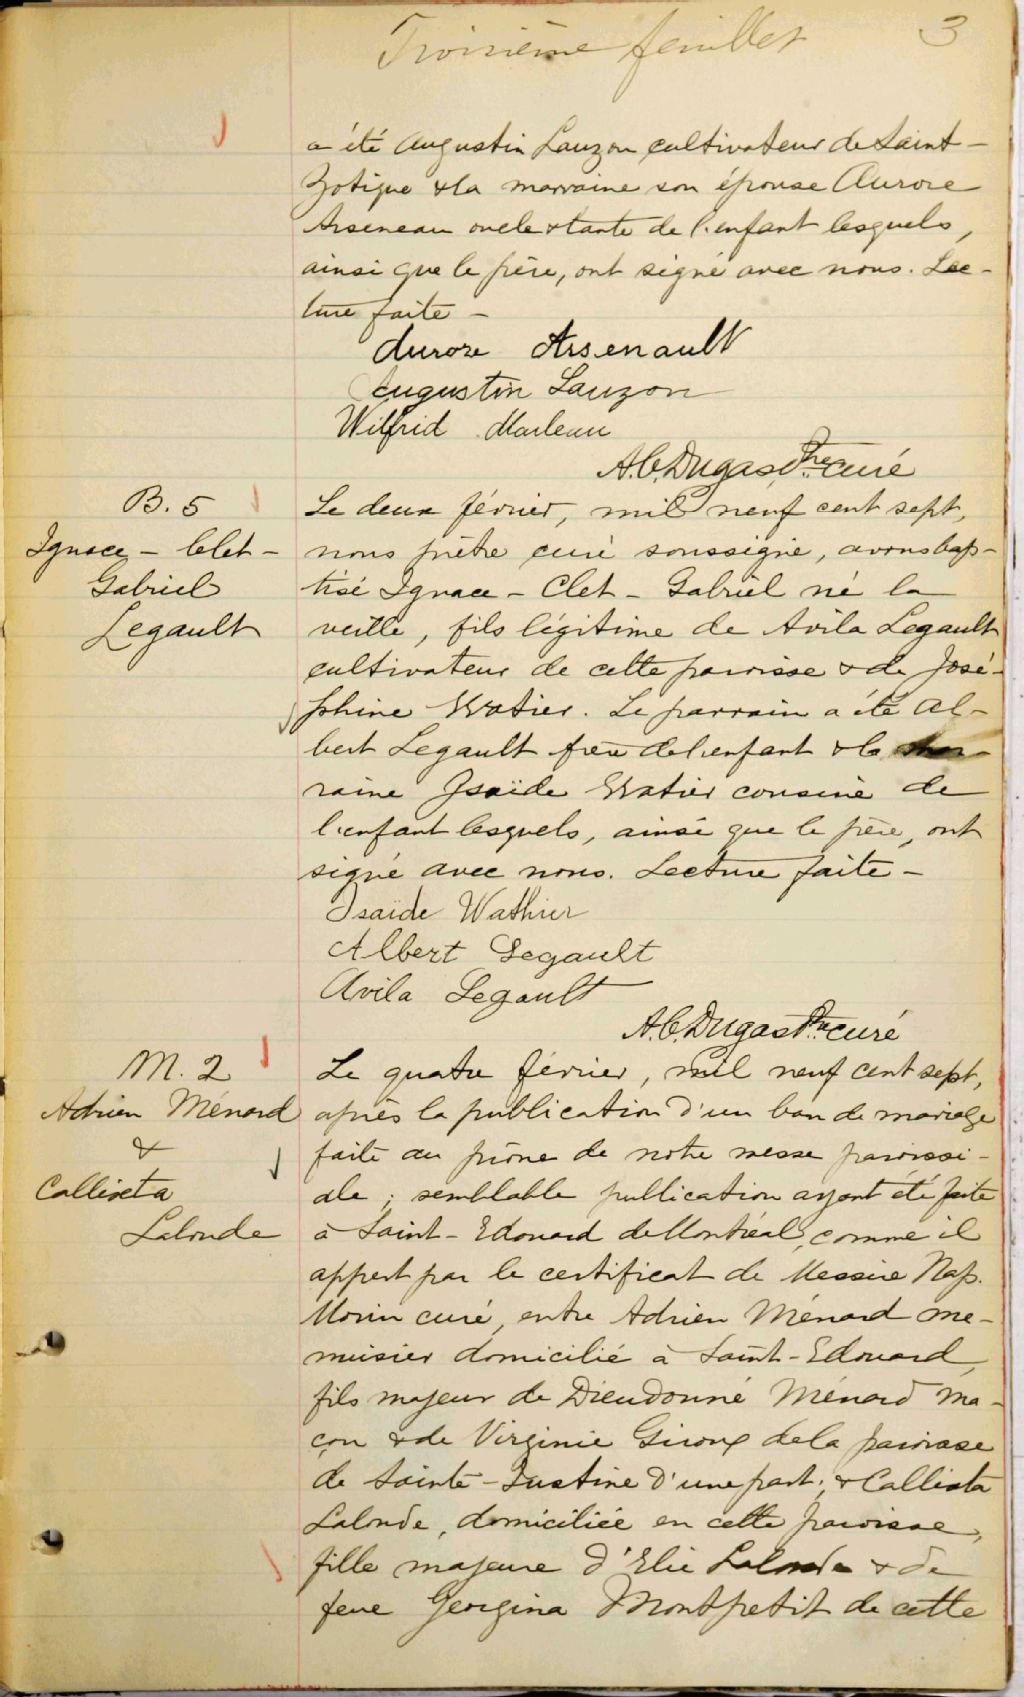 Troisième feuillet
3
a été Augustin Lauzon cultivateur de Saint-
Zotique & la marraine son épouse Aurore
Arseneau oncle & tante de l'enfant lesquels,
ainsi que le père, ont signé avec nous. Lec-
ture faite -
Aurore Arsenault
Augustin Lauzon
Wilfrid Marleau
A.C. Dugas Ptre curé
B. 5
Ignace - Clet -
Gabriel
Legault
Le deux février, mil neuf cent sept,
nous prêtre curé soussigné, avons bap-
tisé Ignace - Clet - Gabriel né la
veille, fils légitime de Avila Legault
cultivateur de cette paroisse & de José-
phine Watier. Le parrain a été Al-
bert Legault frère de l'enfant & la mar-
raine Isaïde Watier cousine de
l'enfant lesquels, ainsi que le père, ont
signé avec nous. Lecture faite -
Isaïde Wathier
Albert Legault
Avila Legault
A.C. Dugas Ptre curé
M. 2
Adrien Ménard
&
Callixta
Lalonde
Le quatre février, mil neuf cent sept,
après la publication d'un ban de mariage
faite au prône de notre messe paroissi-
ale; semblable publication ayant été faite
à Saint-Edouard de Montréal, comme il
appert par le certificat de Messire Nap.
Morin curé, entre Adrien Ménard me-
nuisier domicilié à Saint-Edouard,
fils majeur de Dieudonné Ménard ma-
çon & de Virginie Giroux de la paroisse
de Sainte-Justine d'une part; & Callixta
Lalonde, domiciliée en cette paroisse,
fille majeure d'Elie Lalonde & de
feue Georgina Montpetit de cette